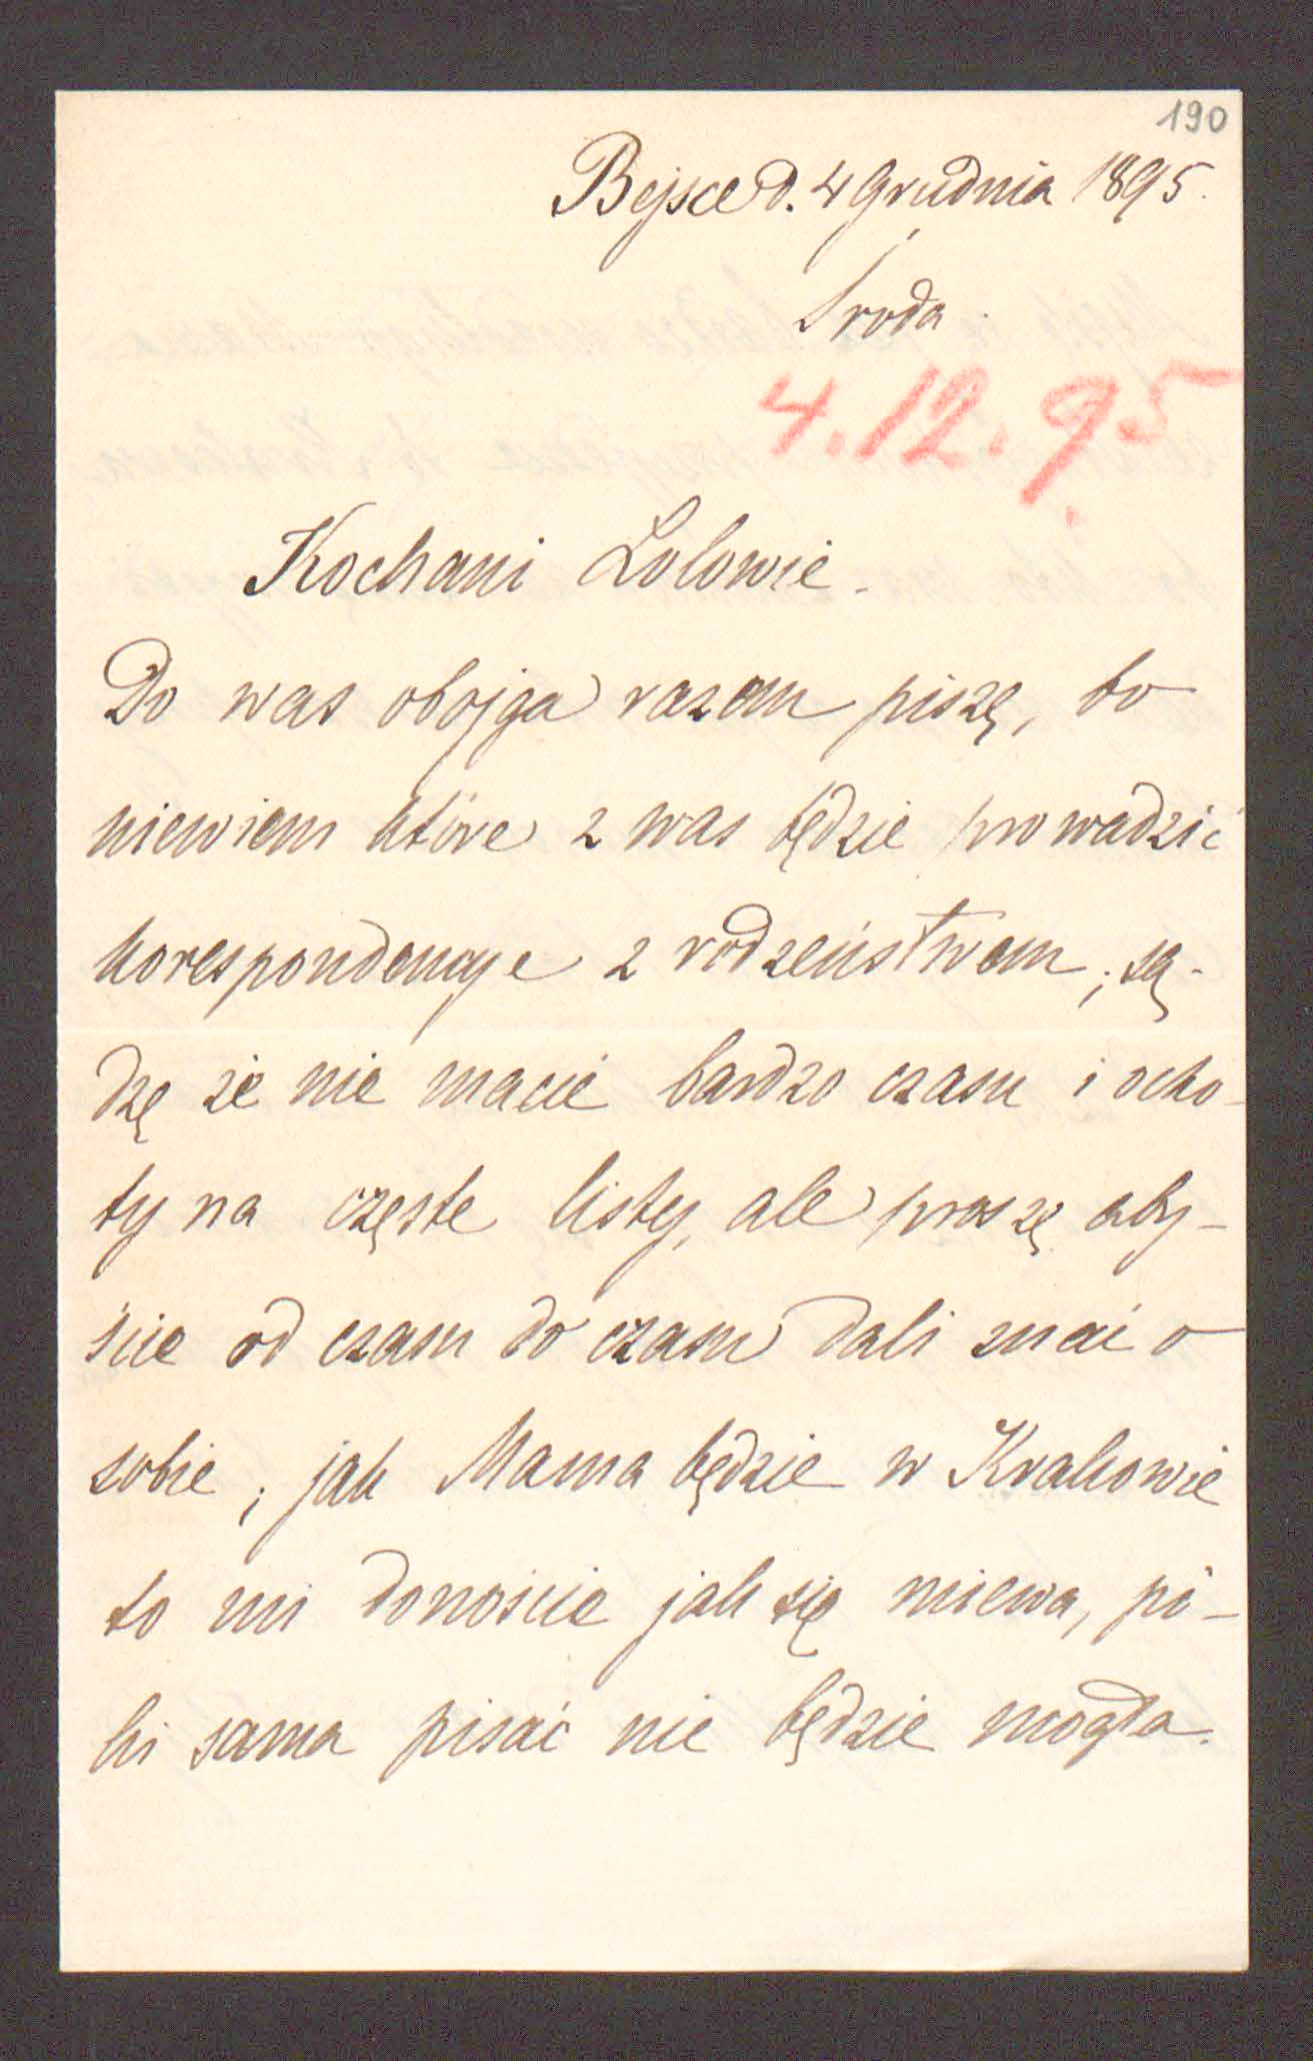 190
Bejsce d. 4 Grudnia 1895.
Środa.
4.12.95
Kochani Lolowie.
Do was obojga razem piszę, bo
niewiem które z was będzie prowadzić
korespondencye z rodzeństwem; są-
dzę że nie macie bardzo czasu i ocho-
ty na częste listy, ale proszę aby-
ście od czasu do czasu dali znać o
sobie; jak Mama będzie w Krakowie
to mi donoście jak się miewa, pó-
ki sama pisać nie będzie mogła.